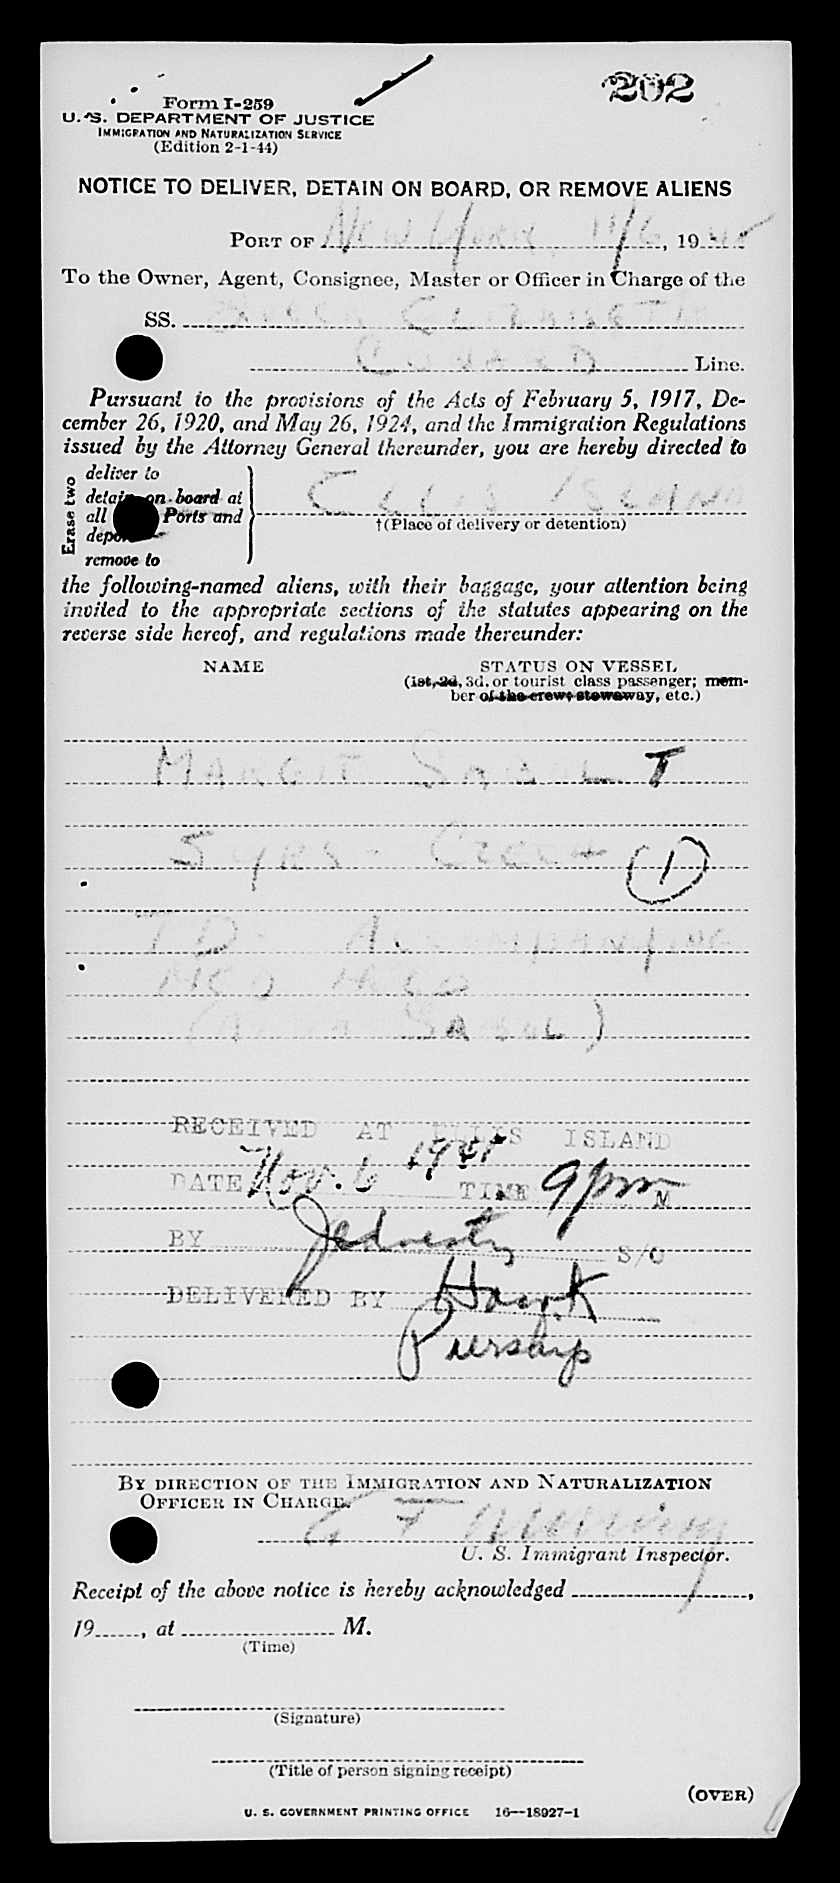 202
Form I-259
U. S. DEPARTMENT OF JUSTICE
IMMIGRATION AND NATURALIZATION SERVICE
(Edition 2-1-44)
NOTICE TO DELIVER, DETAIN ON BOARD, OR REMOVE ALIENS
PORT OF New York, 11/6, 19
To the Owner, Agent, Consignee, Master or Officer in Charge of the
SS. Queen Elizabeth
CUNARD Line.
Pursuant to the provisions of the Acts of February 5, 1917, De-
cember 26, 1920, and May 26, 1924, and the Immigration Regulations
issued by the Attorney General thereunder, you are hereby directed to
Erase two
deliver to
detain on board at
all Ports and
remove to
ELLIS ISLAND
†(Place of delivery or detention)
the following-named aliens, with their baggage, your attention being
invited to the appropriate sections of the statutes appearing on the
reverse side hereof, and regulations made thereunder:
NAME STATUS ON VESSEL
(1st, 2d, 3d, or tourist class passenger; mem-
ber of the crew; stowaway, etc.)
MARGIT T
5 YRS - CZECH 1
TD - Accompanying
MED HELD
RECEIVED AT ELLIS ISLAND
DATE Nov. 6 TIME 9 pm M.
BY S/O
DELIVERED BY Hawk
BY DIRECTION OF THE IMMIGRATION AND NATURALIZATION
OFFICER IN CHARGE.
U. S. Immigrant Inspector.
Receipt of the above notice is hereby acknowledged ,
19 , at M.
(Time)
(Signature)
(Title of person signing receipt)
(OVER)
U. S. GOVERNMENT PRINTING OFFICE 16—18927-1